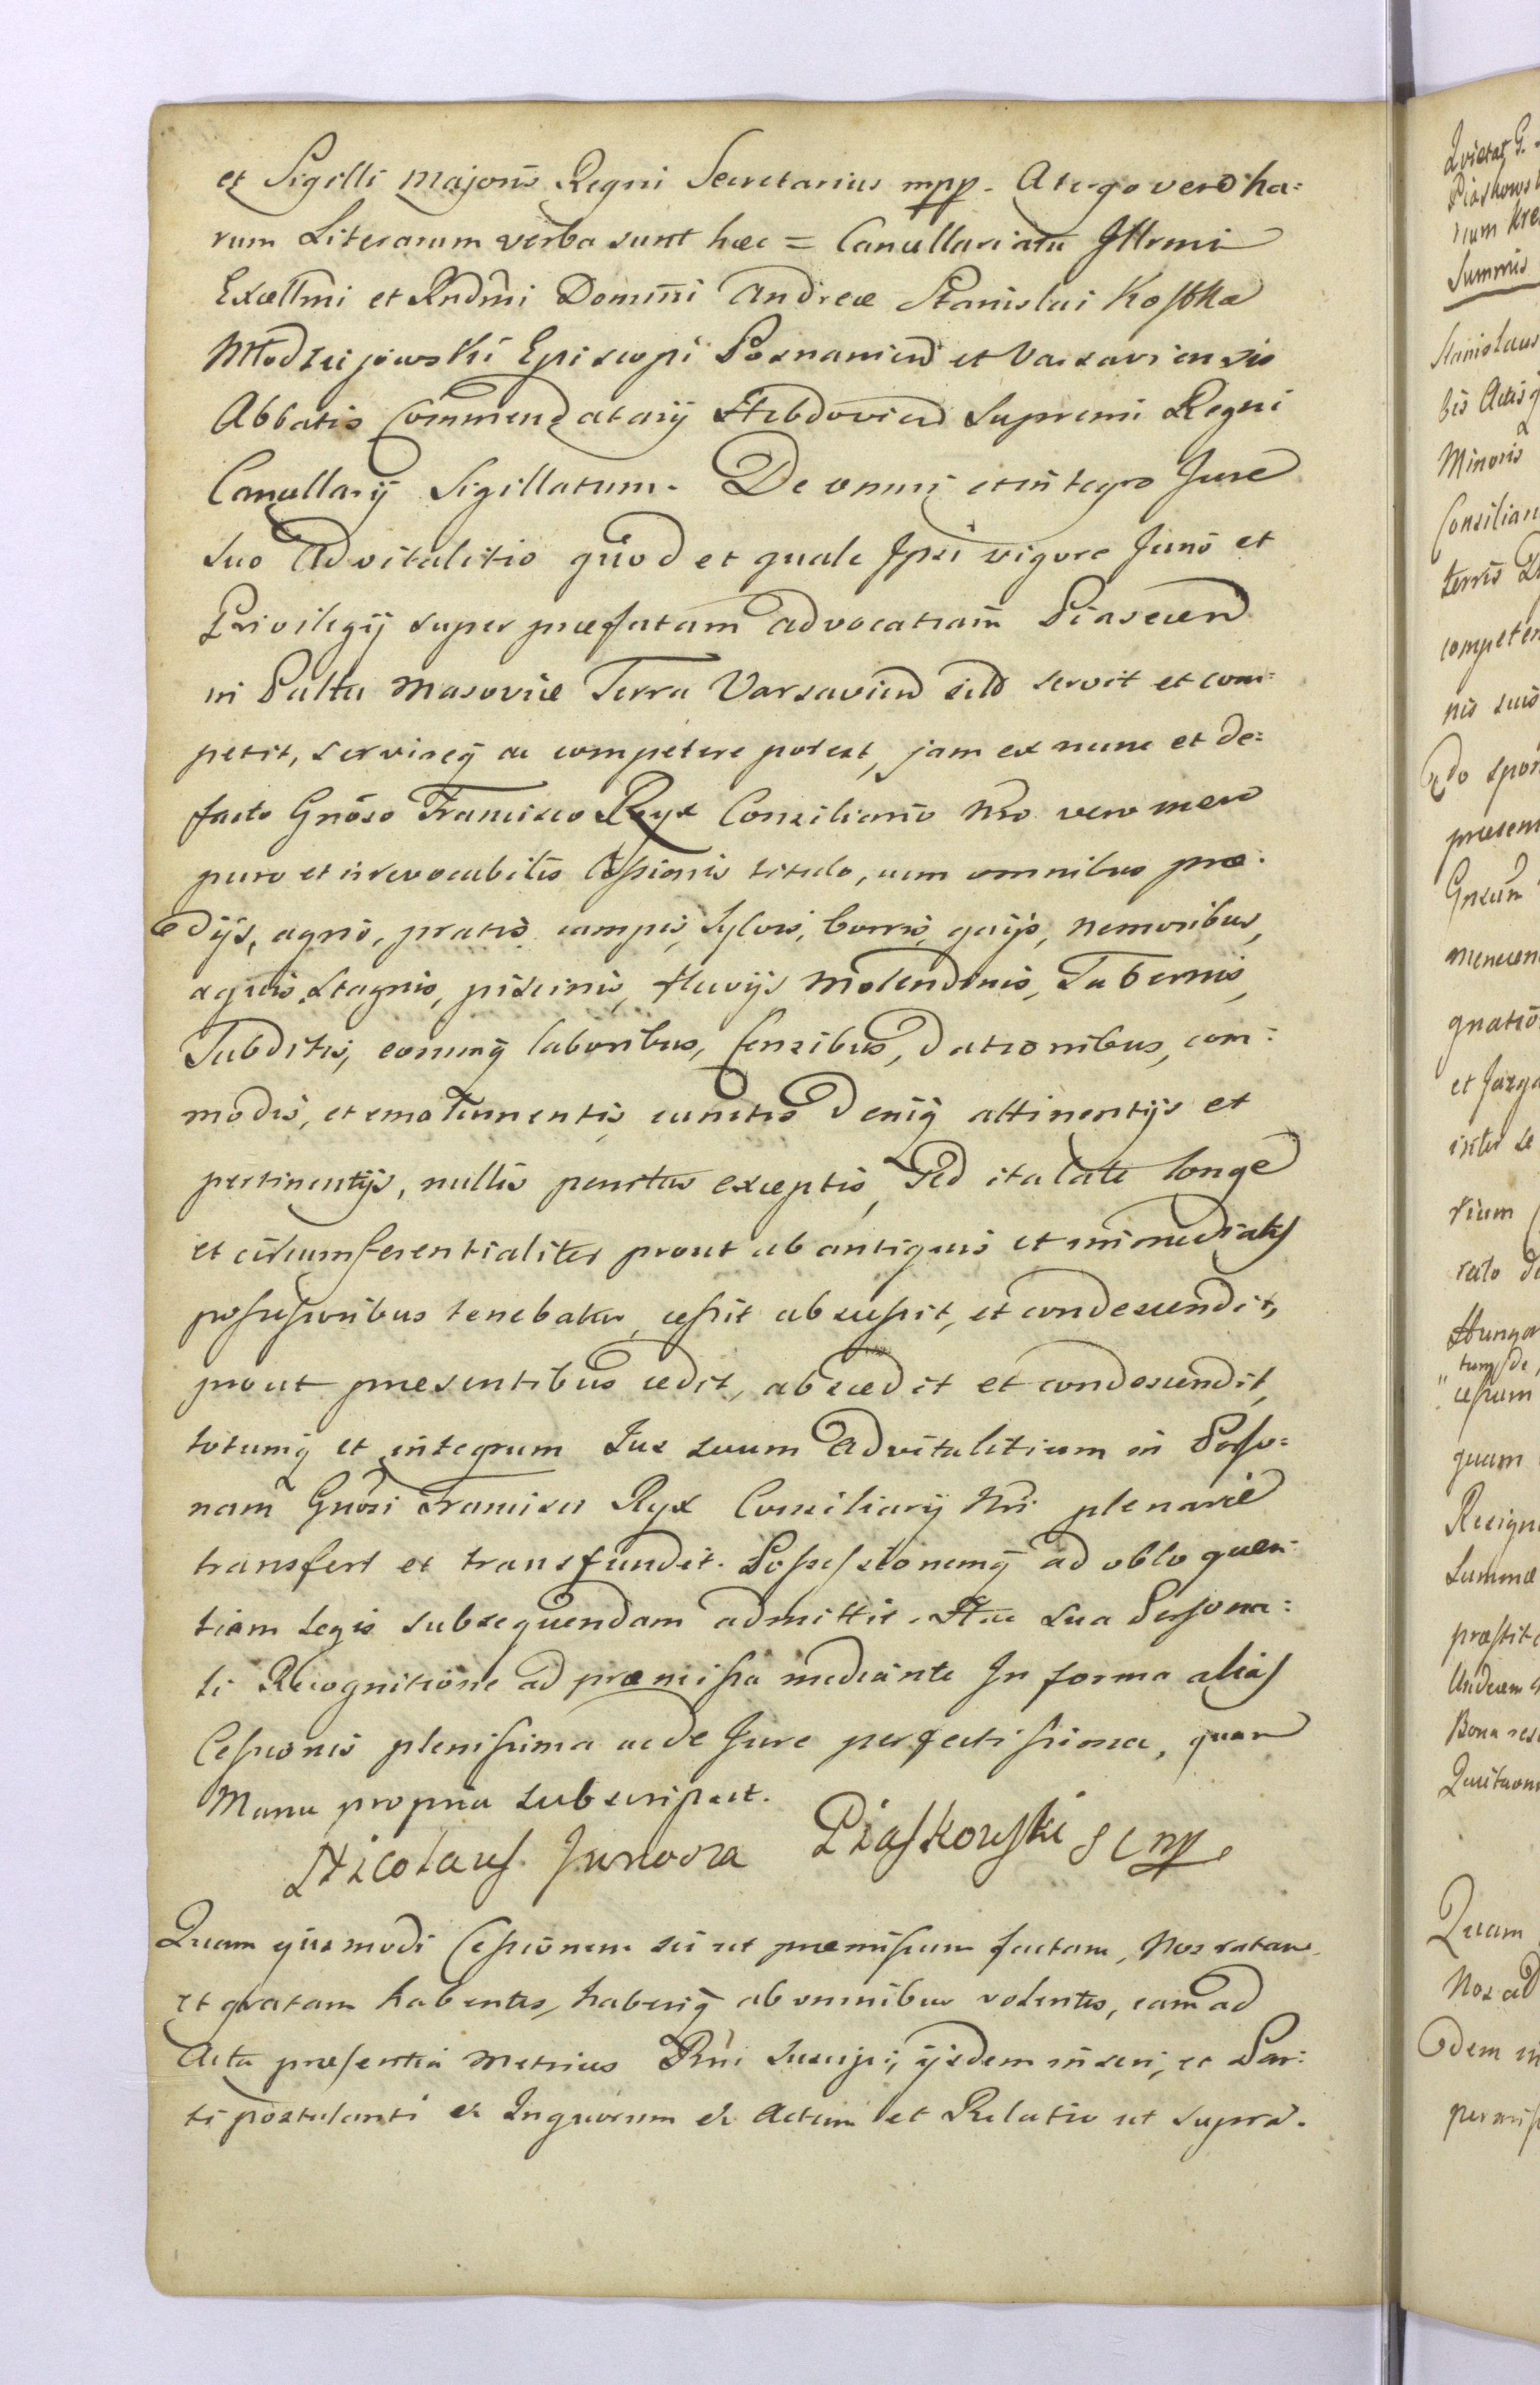 et Sigilli Majoris Regni Secretarius mpp. A tergo vero ha:
rum Literarum verba sunt haec = Cancellariatu Jllrmi
Excellmi et Rndmi Domini Andreae Stanislai Kostka
Młodziejowski Episcopi Posnanien et Varsaviensis
Abbatis Commendatarij Hebdovien Supremi Regni
Cancellarij Sigillatum. De omni et integro Jure
suo Advitalitio quod et quale Jpsi vigore Juris et
Privilegij super praefatam advocatiam Piasecen
in Palttu Masoviae Terra Varsavien servit et com:
petit, servireq ac competere potest, jam ex nunc et de:
facto Gnoso Francisco Ryx Consiliario Nro vero mero
puro et irrevocabilis Cessionis titulo, cum omnibus prae:
dijs, agris, pratis campis, Sylvis, borris, gaijs, nemoribus,
aquis stagnis, piscinis, fluvijs Molendinis, Tabernis,
Subditis, eorumq laboribus, Censibus, dationibus, com:
modis, et emolumentis cunctis deniq attinentijs et
pertinentijs, nullis penitus exceptis, Sed ita late longe
et circumferentialiter prout ab antiquis et immediatis
possessoribus tenebatur, cessit abscessit, et condescendit,
prout praesentibus cedit, abscedit et condescendit,
totumq et integrum Jus suum Advitalitium in Perso:
nam Gnosi Francisci Ryx Consiliarij Nri plenarie
transfert et transfundit. Possessionemq ad obloquen:
tiam Legis subsequendam admittit. Hac sua Persona:
li Recognitione ad praemissa mediante Jn forma alias
Cessionis plenissima ac de Jure perfectissima, quam
Manu propria subscripsit.
Nicolaus Junosza Piaskowski mpp
Quam ejusmodi Cessionem sic ut praemissum factam, Nos ratam
et gratam habentes, haberiq ab omnibus volentes, eam ad
Acta praesentia Metrices Rni Suscipi, ijsdem inseri, et Par:
ti postulanti et Inquorum et Actum et Relatio ut supra.